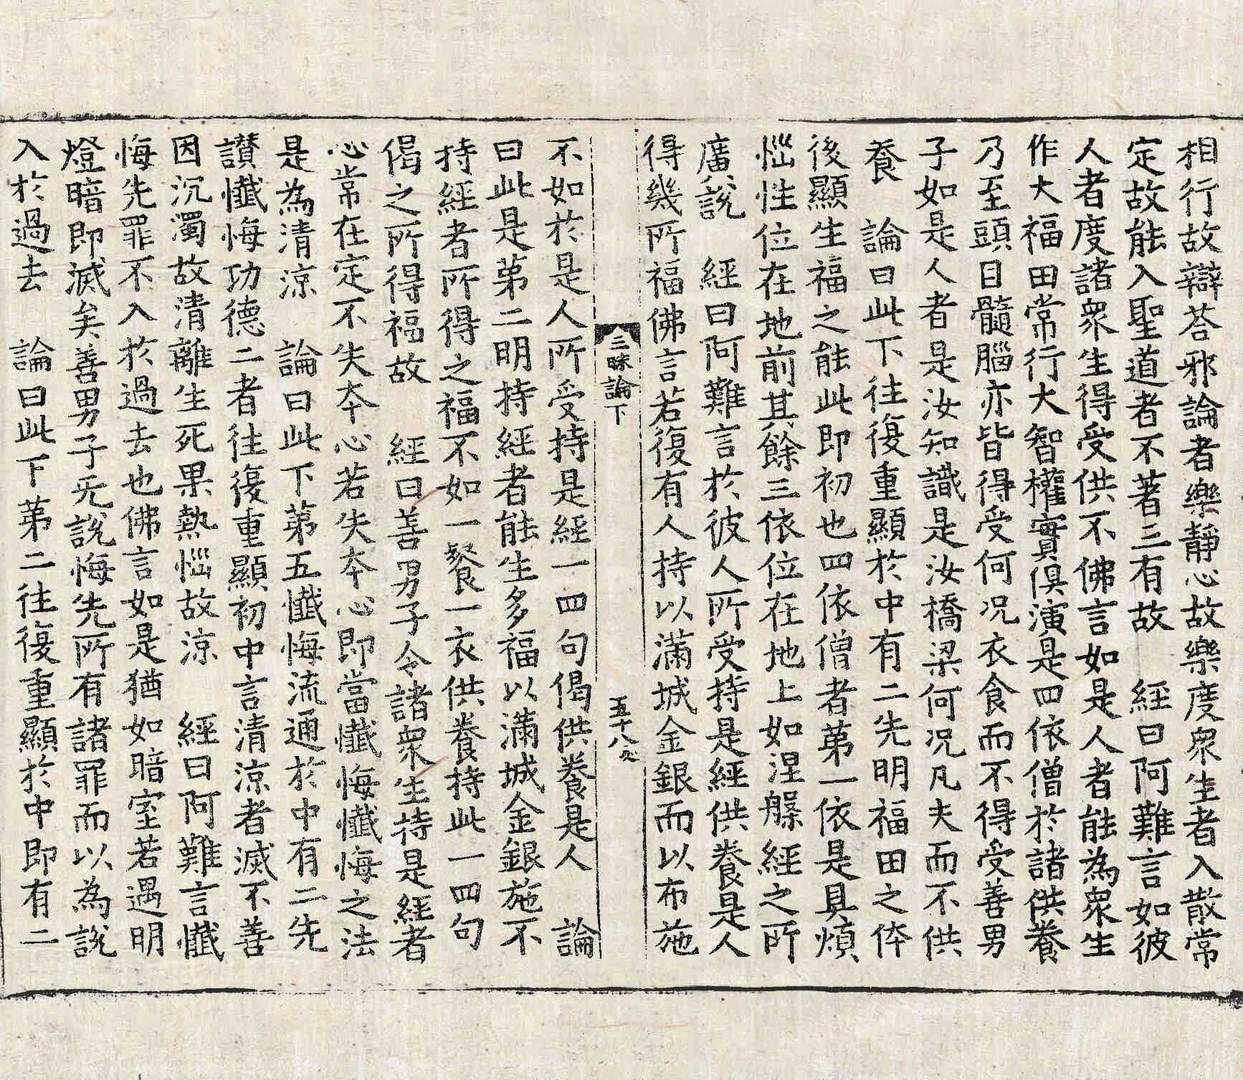 相行故辯荅邪論者樂靜心故樂度衆生者入散常
定故能入聖道者不著三有故　經曰阿難言如彼
人者度諸衆生得受供不佛言如是人者能為衆生
作大福田常行大智權實俱演是四依僧於諸供養
乃至頭目髓腦亦皆得受何况衣食而不得受善男
子如是人者是汝知識是汝橋梁何况凡夫而不供
養　論曰此下往復重顯於中有二先明福田之体
後顯生福之能此即初也四依僧者第一依是具煩
惱性位在地前其餘三依位在地上如涅槃經之所
廣說　經曰阿難言於彼人所受持是經供養是人
得幾所福佛言若復有人持以滿城金銀而以布施
三昧論下
五十八
不如於是人所受持是經一四句偈供養是人　論
曰此是第二明持經者能生多福以滿城金銀施不
持經者所得之福不如一飡一衣供養持此一四句
偈之所得福故　經曰善男子令諸衆生持是經者
心常在定不失夲心若失夲心即當懺悔懺悔之法
是為清凉　論曰此下第五懺悔流通於中有二先
讃懺悔功德二者往復重顯初中言清凉者滅不善
因沉濁故清離生死果熱惱故凉　經曰阿難言懺
悔先罪不入於過去也佛言如是猶如暗室若遇明
燈暗即滅矣善男子无說悔先所有諸罪而以為說
入於過去　論曰此下第二往復重顯於中即有二